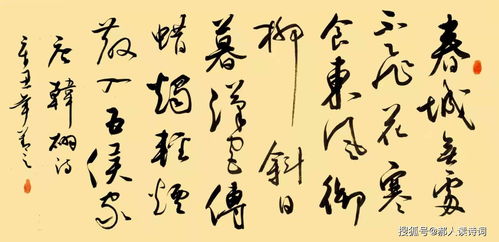 春城無處
不飛花寒
食東風御
柳斜日
暮漢宮傳
蠟燭輕煙
散入五侯家
唐韓翃詩
辛丑年
搜狐号@郝人读诗词